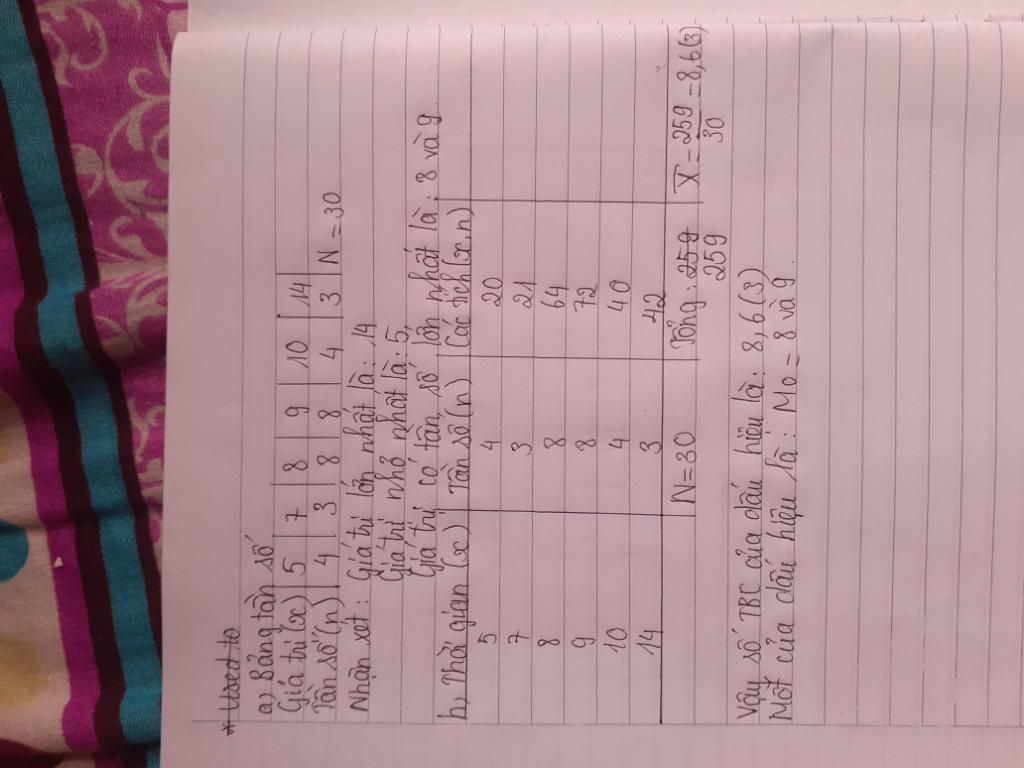 * Used to
a) Bảng tần số
Giá trị (x) 5 7 8 9 10 14
Tần số (n) 4 3 8 8 4 3 N = 30
Nhận xét: Giá trị lớn nhất là: 14
Giá trị nhỏ nhất là: 5
Giá trị có tần số lớn nhất là: 8 và 9
b, Thời gian (x) Tần số (n) Các tích (x.n)
5 4 20
7 3 21
8 8 64
9 8 72
10 4 40
14 3 42
N = 30 Tổng: 259 X̄ = 259/30 = 8,6(3)
259
Vậy số TBC của dấu hiệu là: 8,6(3)
Mốt của dấu hiệu là: M₀ = 8 và 9